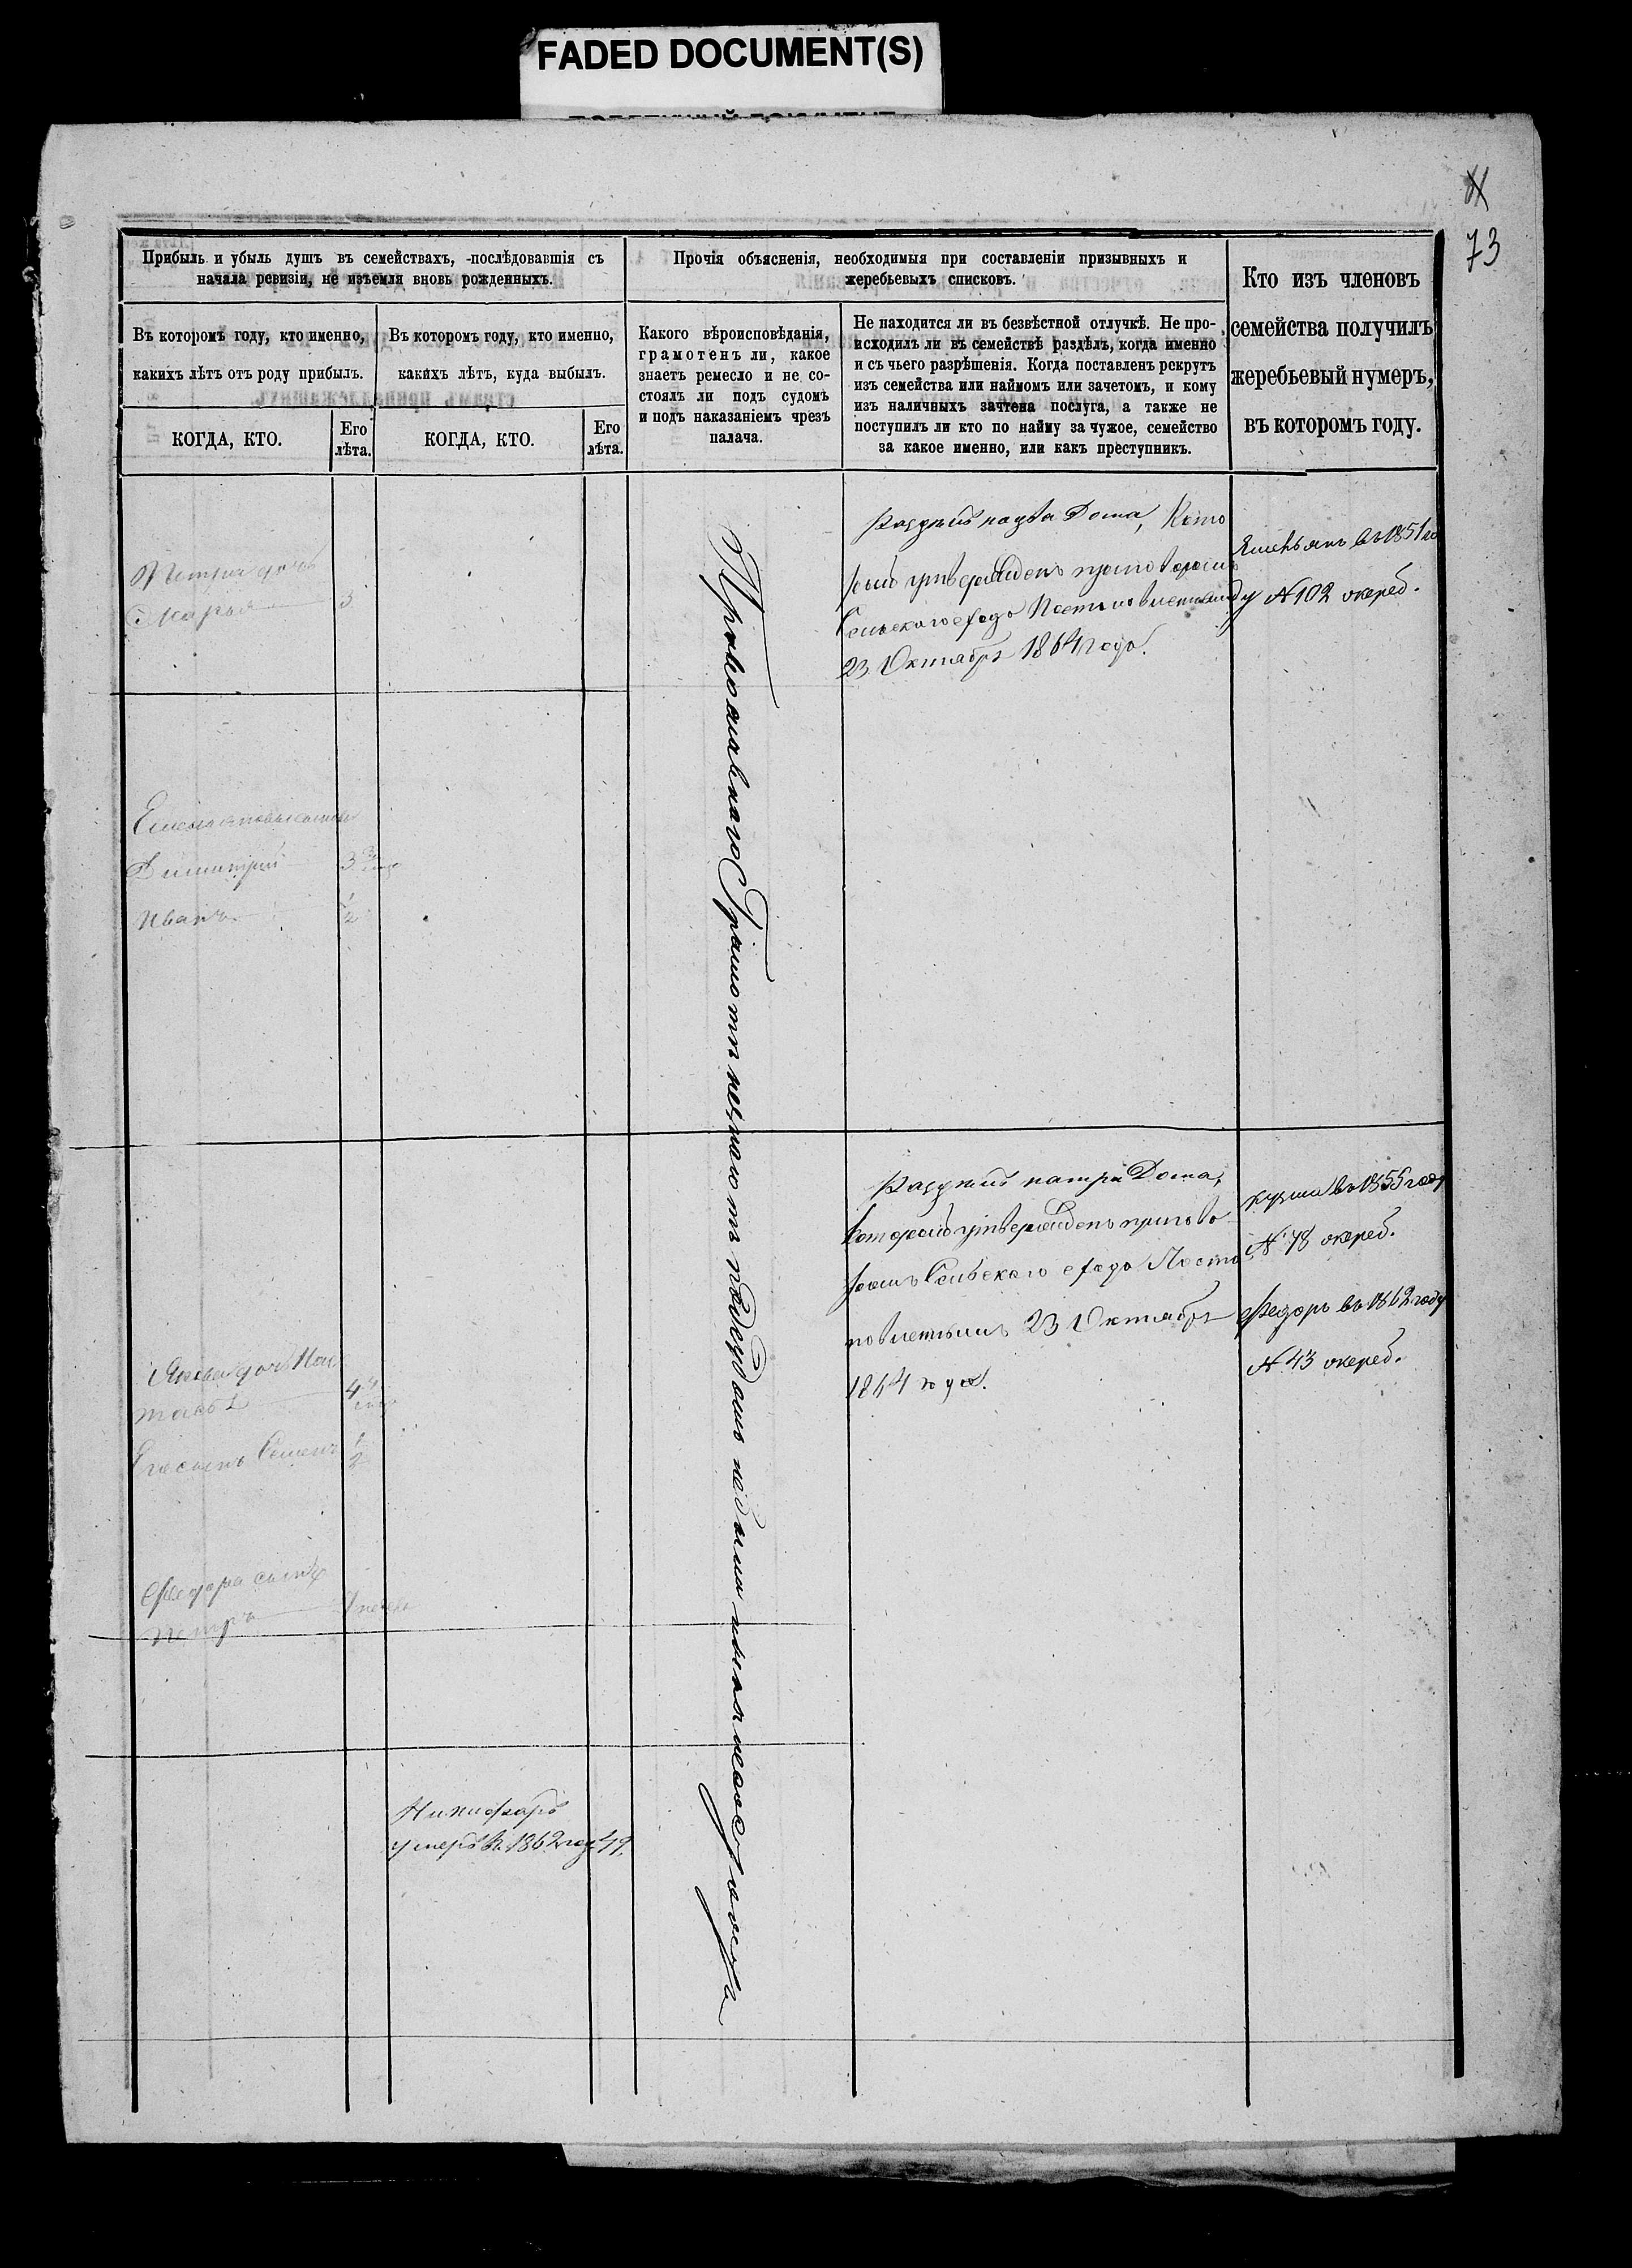 FADED DOCUMENT(S)
73
Прибыль и убыль душъ въ семействахъ, -послѣдовавшія съ
начала ревизіи, не изъемля вновь рожденныхъ.
Въ которомъ году, кто именно,
какихъ лѣтъ отъ роду прибылъ.
КОГДА, КТО.
Его
лѣта.
Въ которомъ году, кто именно,
какихъ лѣтъ, куда выбылъ.
КОГДА, КТО.
Его
лѣта.
Прочія объясненія, необходимыя при составленіи призывныхъ и
жеребьевыхъ списковъ.
Какого вѣроисповѣданія,
грамотенъ ли, какое
знаетъ ремесло и не со-
стоялъ ли подъ судомъ
и подъ наказаніемъ чрезъ
палача.
Не находится ли въ безвѣстной отлучкѣ. Не про-
исходилъ ли въ семействѣ раздѣлъ, когда именно
и съ чьего разрѣшенія. Когда поставленъ рекрутъ
изъ семейства или наймомъ или зачетомъ, и кому
изъ наличныхъ зачтена послуга, а также не
поступилъ ли кто по найму за чужое, семейство
за какое именно, или какъ преступникъ.
Кто изъ членовъ
семейства получилъ
жеребьевый нумеръ,
въ которомъ году.
дочь
Марья 3
Раздѣлъ на два Дома, Кото
рый утвержденъ приговоромъ
Сельскаго схода
23 Октября 1864 года.
въ 1851 го
ду №102 очеред.
Димитрій 3
Иванъ 1/2
Православнаго Грамотѣ незнаютъ подсудомъ небыли
Раздѣлъ на три Дома,
который утвержденъ пригово
ромъ Сельскаго схода
23 Октября
1864 года.
кузма въ 1855 году
№ 78 очеред.
Федоръ въ 1862 году
№ 43 очеред.
дочь
4
Его сынъ Семенъ 1/2
Федора сынъ
Петръ
Никифоръ
умеръ въ 1862 году 49.